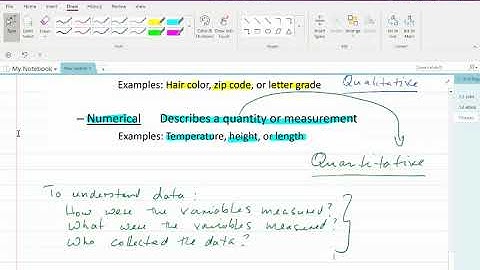 File Home Insert Draw View
My Notebook
Examples: Hair color, zip code, or letter grade Qualitative
– Numerical Describes a quantity or measurement
Examples: Temperature, height, or length
Quantitative
To understand data:
How were the variables measured?
What were the variables measured?
Who collected the data?